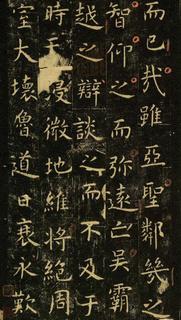 而已哉雖亞聖鄰幾之
智仰之而弥遠亡吳霸
越之辯談之而不及于
時微地維將絕周
室大壞魯道日衰永歎